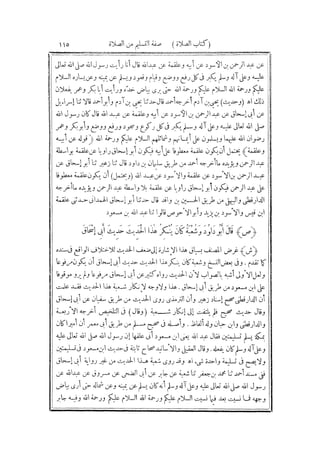 (كتاب الصلاة) صفة التسليم من الصلاة ١١٥
عن عبد الرحمن بن الأسود عن أبيه وعلقمة عن عبدالله قال أنا رأيت رسول الله صلى الله تعالى
عليه وعلى آله وسلم يكبر فى كل رفع ووضع وقيام وقعود ويسلم عن يمينه وعن يساره السلام
عليكم ورحمة الله السلام عليكم ورحمة الله حتى يرى بياض خده ورأيت أبا بكر وعمر يفعلان
ذلك اه (وحديث) يحيى بن آدم أخرجه أحمد قال حدثنا يحيى بن آدم وأبو أحمد قالا ثنا إسرائيل
عن أبى إسحاق عن عبد الرحمن بن الأسود عن أبيه وعلقمة عن عبد الله قال كان رسول الله
صلى الله تعالى عليه وعلى آله وسلم يكبر فى كل ركوع وسجود ورفع ووضع وأبو بكر وعمر
رضوان الله عليهما ويسلمون على أيمانهم وشمائلهم السلام عليكم ورحمة الله (قوله عن أبيه
وعلقمة) يحتمل أن يكون علقمة معطوفا على أبيه فيكون أبو إسحاق راويا عن علقمة بواسطة
عبد الرحمن ويؤيده ما أخرجه أحمد من طريق سليمان بن داود قال ثنا زهير ثنا أبو إسحاق عن
عبد الرحمن بن الأسود عن علقمة والأسود عن عبد الله (ويحتمل) أن يكون علقمة معطوفا
على عبد الرحمن فيكون أبو إسحاق راويا عن علقمة بلا واسطة عبد الرحمن ويؤيده ما أخرجه
الدارقطنى والبيهقى من طريق الحسين بن واقد قال حدثنا أبو إسحاق الهمدانى حدثنى علقمة
ابن قيس والأسود بن يزيد وأبو الأحوص قالوا ثنا عبد الله بن مسعود
﴿ص﴾ قَالَ أَبُو دَاوُدَ وَشُعْبَةُ كَانَ يُنْكِرُ هَذَا الْحَدِيثَ حَدِيثَ أَبِى إِسْحَاقَ
﴿ش﴾ غرض المصنف بسياق هذا الإشارة إلى ضعف الحديث للاختلاف الواقع فى سنده
كما تقدم. وفى بعض النسخ وشعبة كان ينكر هذا الحديث حديث أبى إسحاق أن يكون مرفوعا
ولعل الأولى أشبه بالصواب لأن الحديث رواه كثير عن أبى إسحاق مرفوعا ولم يرو موقوفا
على ابن مسعود من طريق أبى إسحاق. هذا ولا وجه لإنكار شعبة هذا الحديث فقد علمت
أن الدارقطنى صحح إسناد زهير وأن الترمذى روى الحديث من طريق سفيان عن أبى إسحاق
وقال حديث صحيح فلم يلتفت إلى إنكار شعبة (وقال) فى التلخيص أخرجه الأربعة
والدارقطنى وابن حبان وله ألفاظ. وأصله فى صحيح مسلم من طريق أبى معمر أن أميرا كان
بمكة يسلم تسليمتين فقال عبد الله يعنى ابن مسعود أنى علقها إن رسول الله صلى الله تعالى عليه
وعلى آله وسلم كان يفعله. وقال العقيلى والأسانيد صحاح ثابتة فى حديث ابن مسعود فى تسليمتين
ولا يصح فى تسليمة واحدة شىء اه وقد روى شعبة هذا الحديث من غير رواية أبى إسحاق
ففى مسند أحمد ثنا محمد بن جعفر ثنا شعبة عن جابر عن أبى الضحى عن مسروق عن عبدالله عن
رسول الله صلى الله تعالى عليه وعلى آله وسلم أنه كان يسلم عن يمينه وعن شماله حتى أرى بياض
وجهه فما نسيت بعد فيما نسيت السلام عليكم ورحمة الله السلام عليكم ورحمة الله وفيه جابر